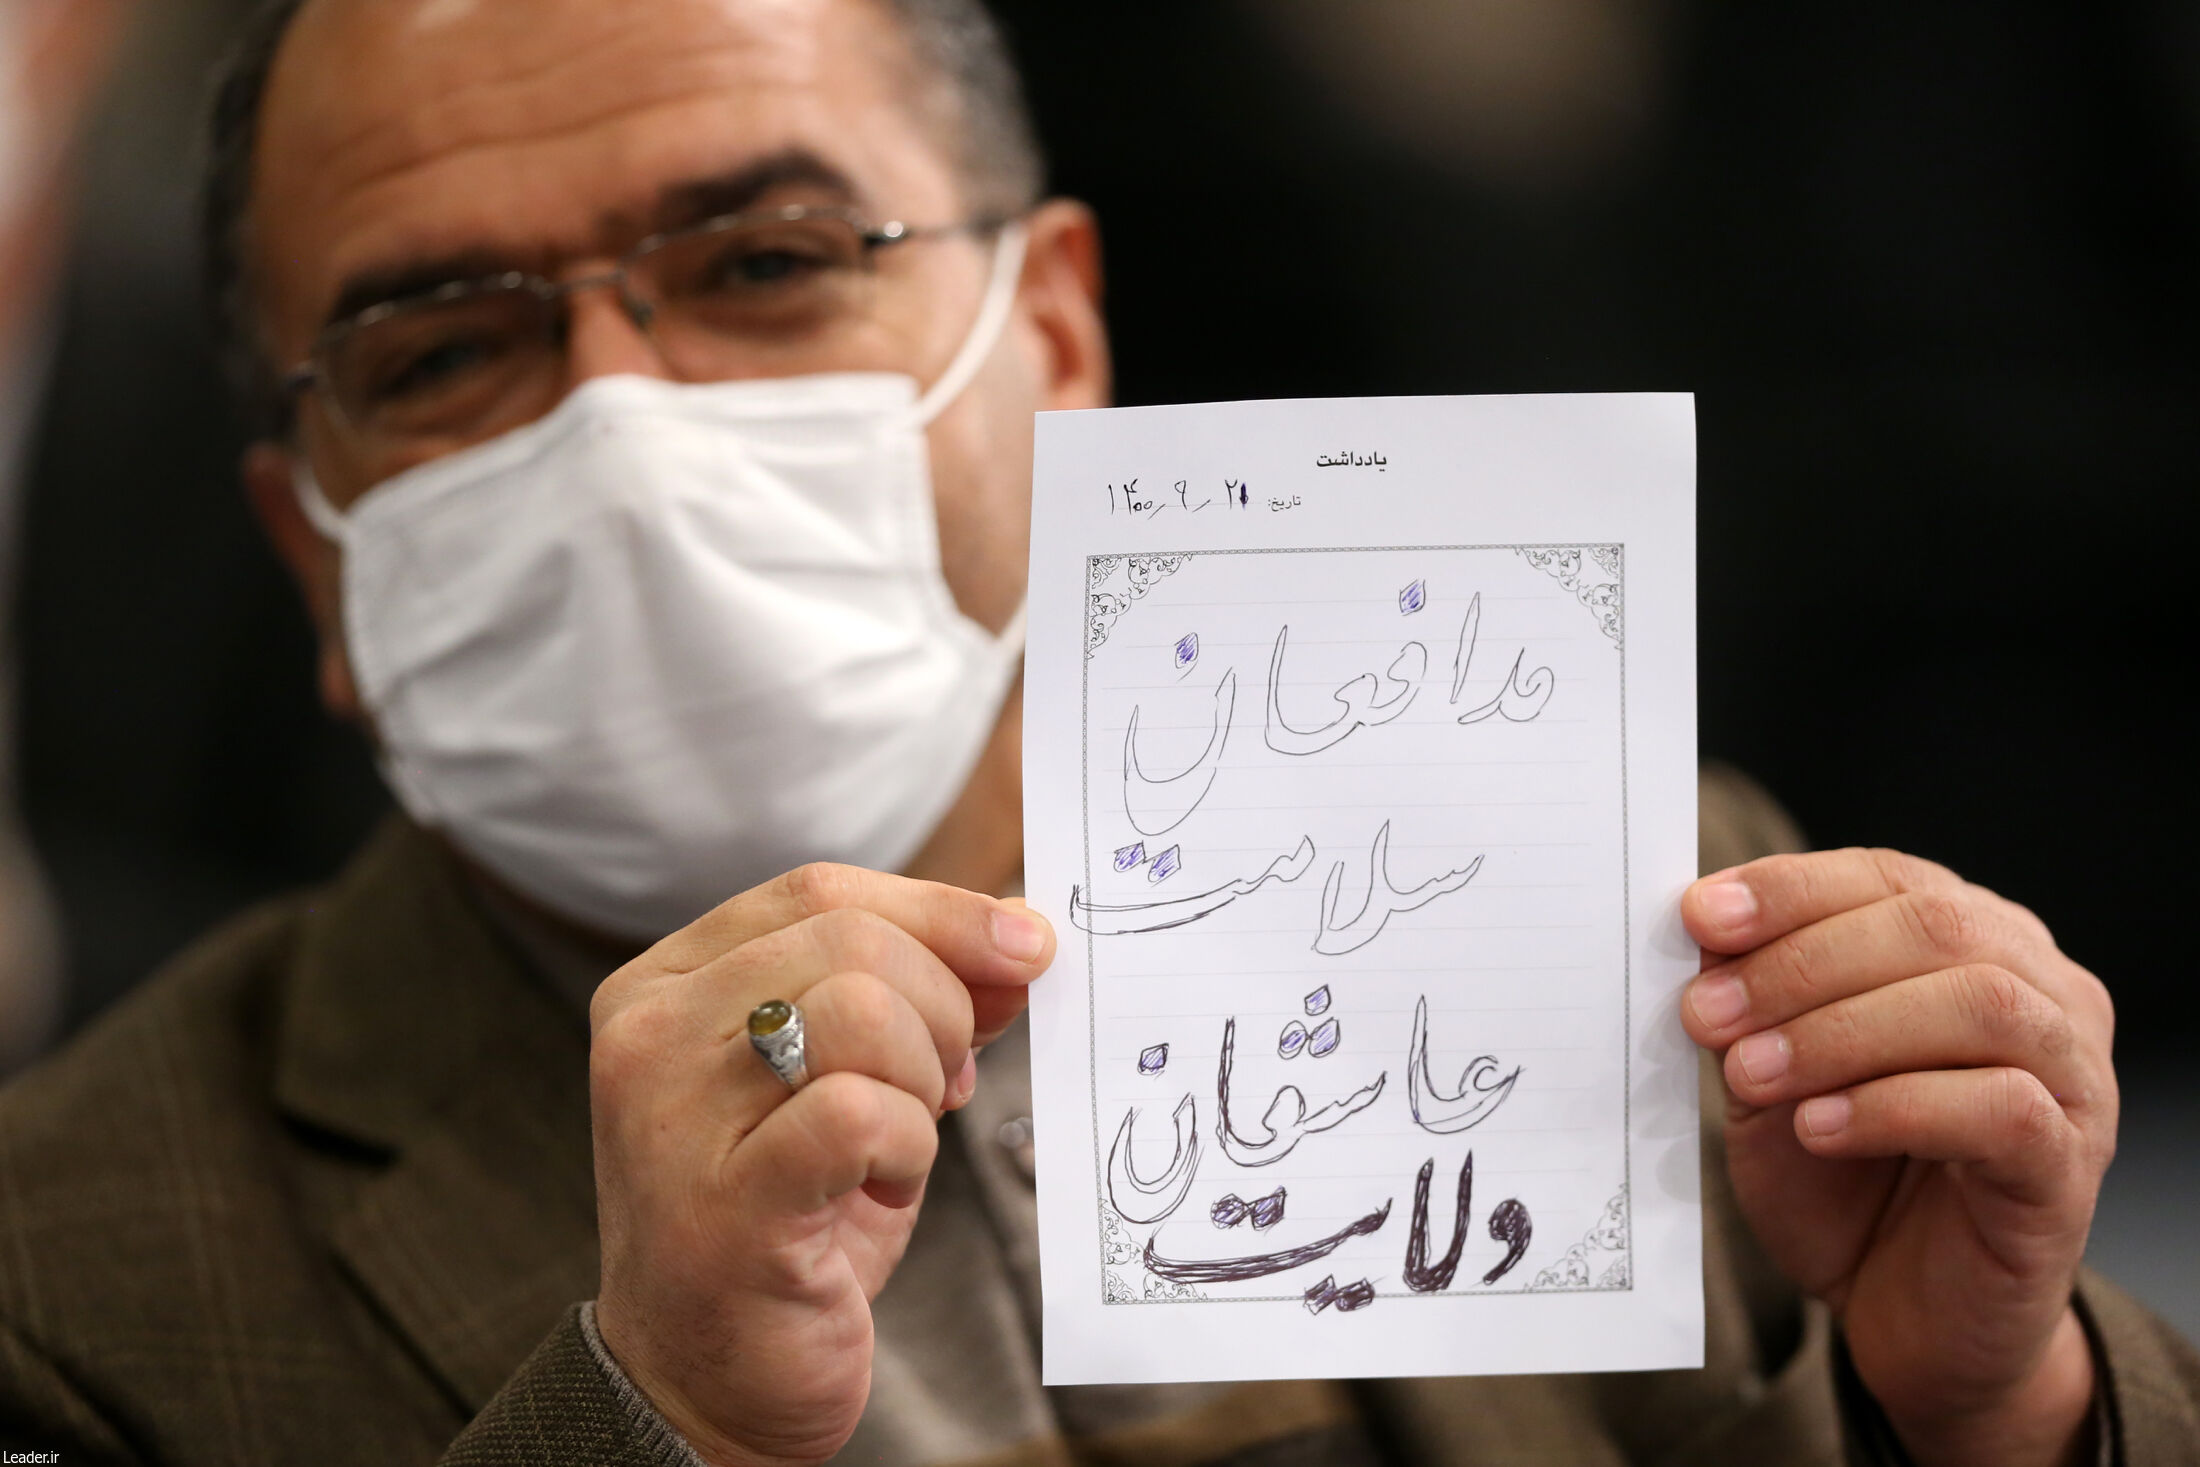 یادداشت
تاریخ: ۱۴۰۰٫۹٫۲۱
مدافعان
سلامت
عاشقان
ولایت
Leader.ir